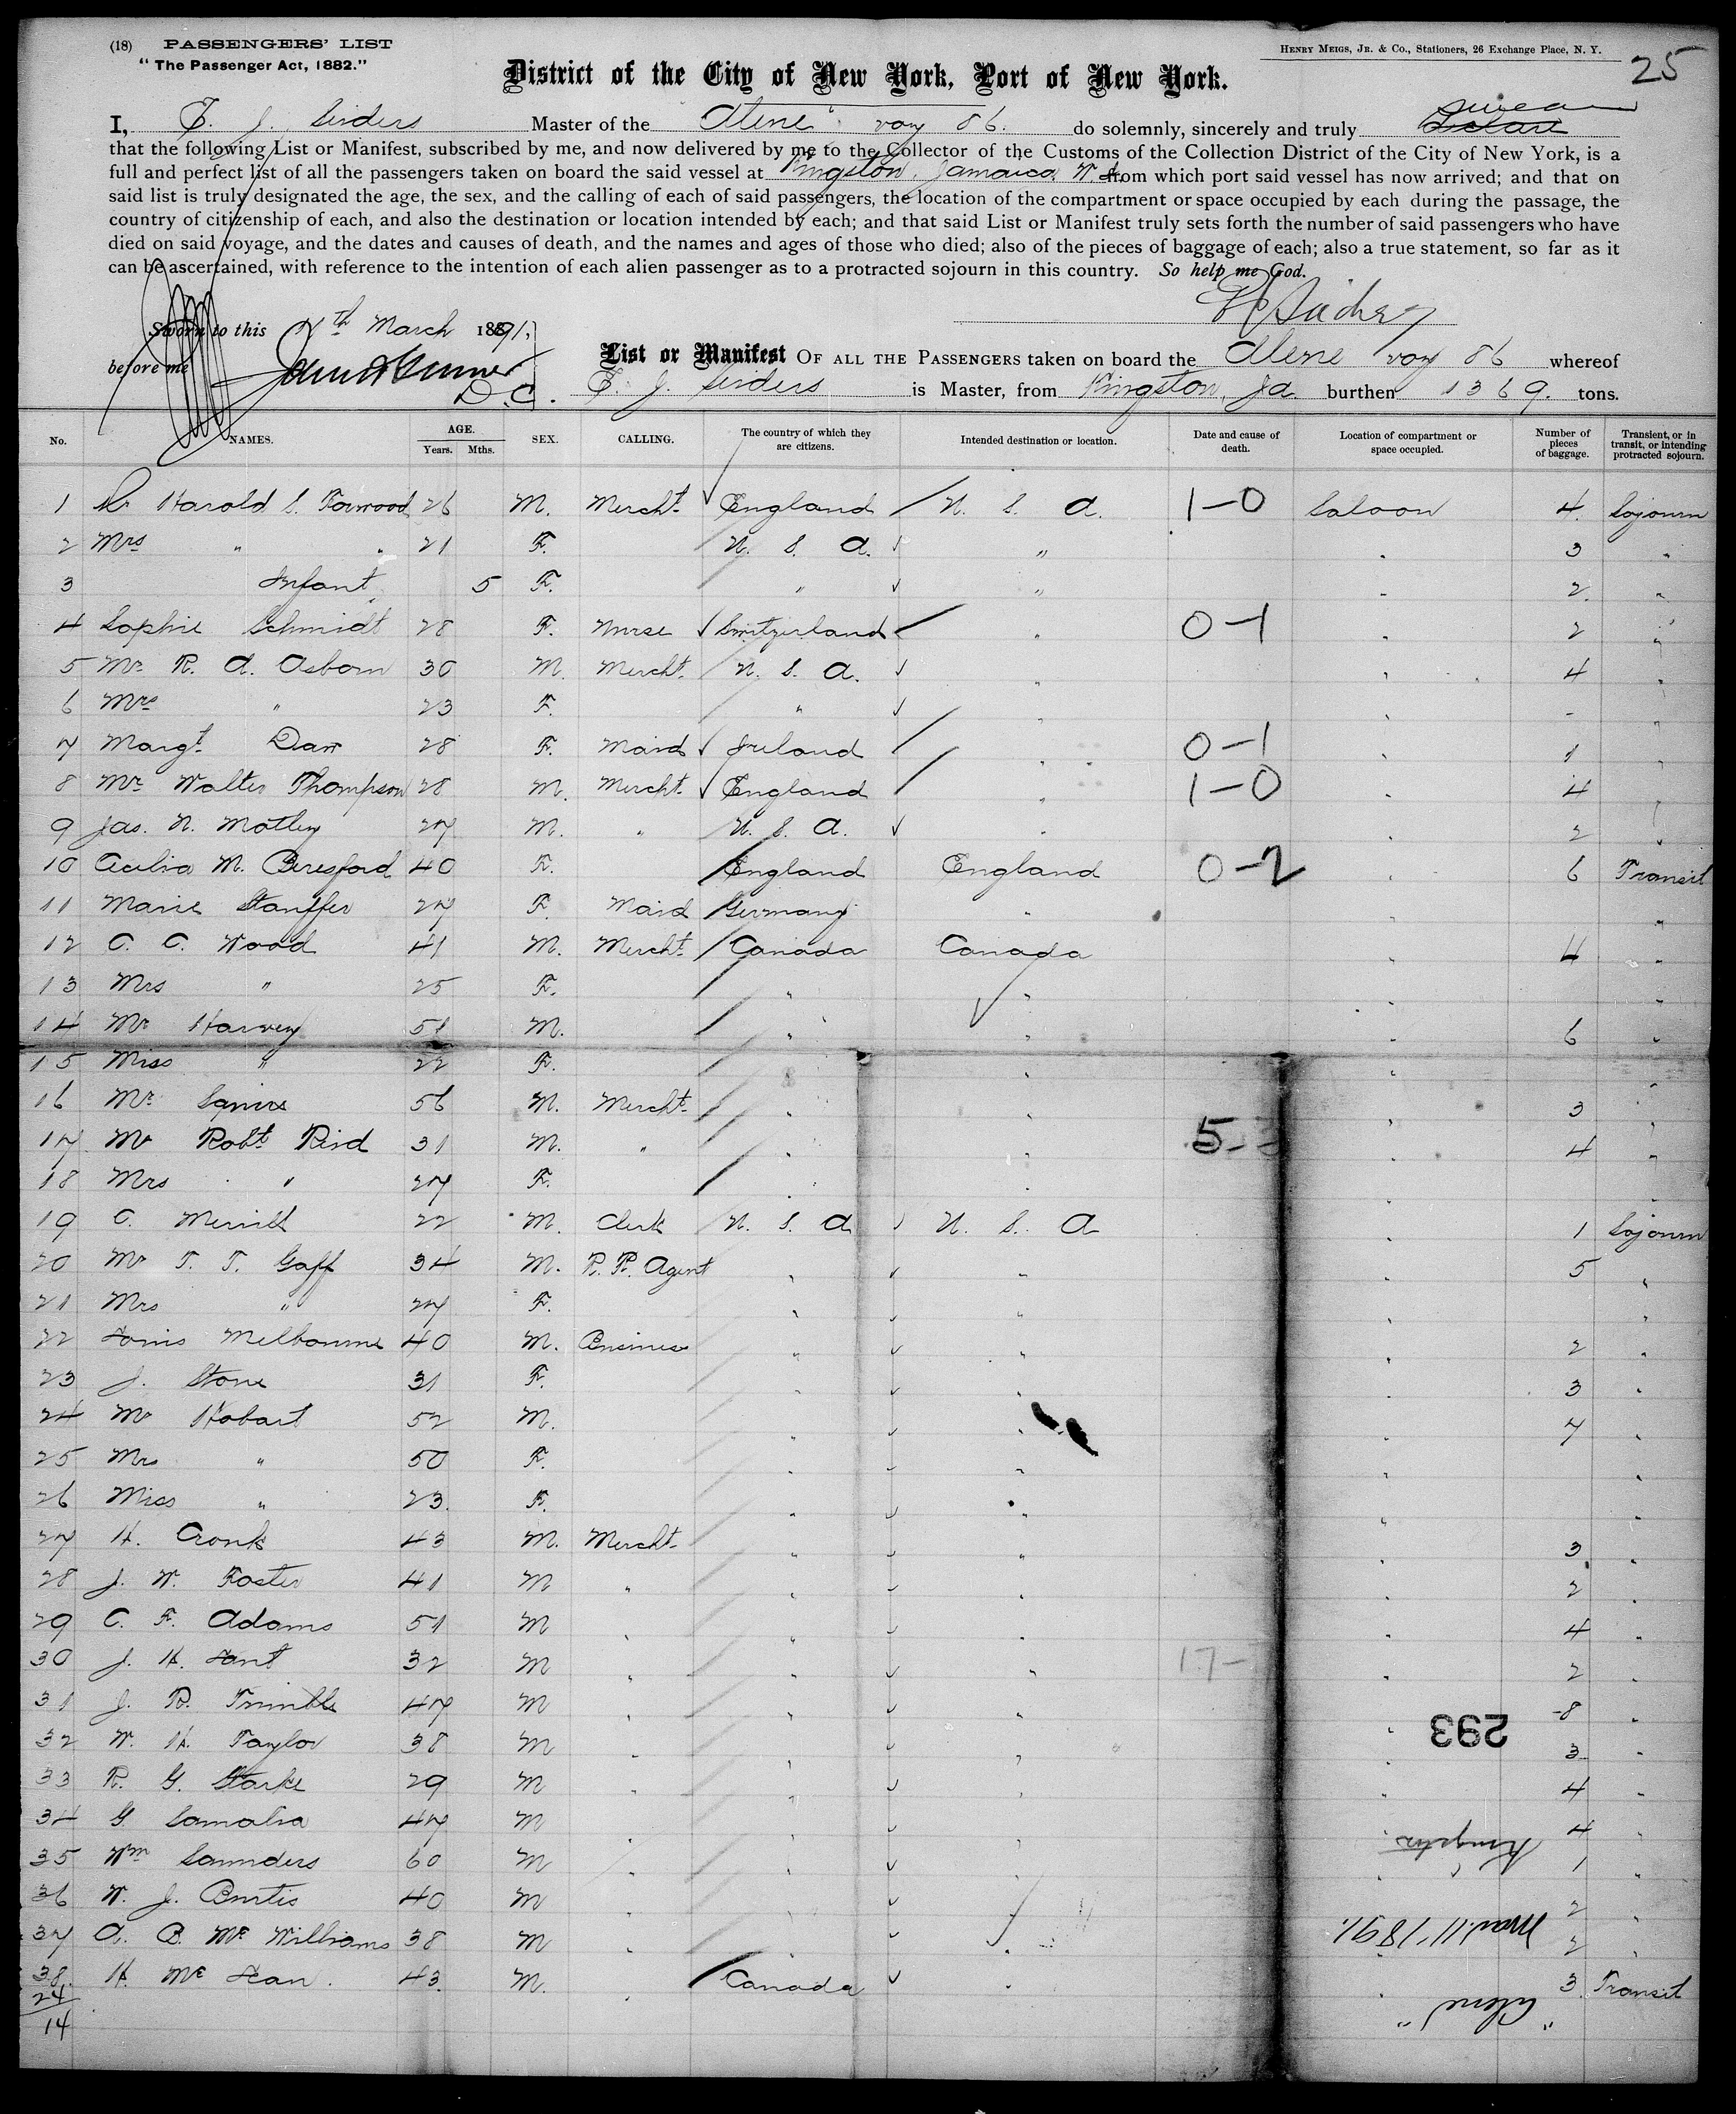 (18) PASSENGERS' LIST
"The Passenger Act, 1882."
HENRY MEIGS, JR. & CO., Stationers, 26 Exchange Place, N. Y.
25
District of the City of New York, Port of New York.
swear
I, E. J. Seiders Master of the Alene voy 86. do solemnly, sincerely and truly declare
that the following List or Manifest, subscribed by me, and now delivered by me to the Collector of the Customs of the Collection District of the City of New York, is a
full and perfect list of all the passengers taken on board the said vessel at Kingston, Jamaica W. I. from which port said vessel has now arrived; and that on
said list is truly designated the age, the sex, and the calling of each of said passengers, the location of the compartment or space occupied by each during the passage, the
country of citizenship of each, and also the destination or location intended by each; and that said List or Manifest truly sets forth the number of said passengers who have
died on said voyage, and the dates and causes of death, and the names and ages of those who died; also of the pieces of baggage of each; also a true statement, so far as it
can be ascertained, with reference to the intention of each alien passenger as to a protracted sojourn in this country. So help me God.
Sworn to this 11th March 1891.
before me
D.C.
List or Manifest OF ALL THE PASSENGERS taken on board the Alene voy 86 whereof
E. J. Seiders is Master, from Kingston, Ja burthen 1369. tons.
No. NAMES. AGE. Years. Mths. SEX. CALLING. The country of which they are citizens. Intended destination or location. Date and cause of death. Location of compartment or space occupied. Number of pieces of baggage. Transient, or in transit, or intending protracted sojourn.
1 Mr Harold S. Forwood 26 M. Mercht. England U. S. A. 1-0 Saloon 4. Sojourn
2 Mrs " " 21 F. U. S. A. " " 3 "
3 Infant 5 F. " " " 2. "
4 Sophie Schmidt 28 F. Nurse Switzerland " 0-1 " 2 "
5 Mr. R. A. Osborn 30 M. Mercht. U. S. A. " " 4 "
6 Mrs " 23 F. " " " - "
7 Margt. Darr 28 F. Maid Ireland " 0-1 " 1 "
8 Mr. Walter Thompson 28 M. Mercht. England " 1-0 " 4 "
9 Jas. N. Motley 27 M. " U. S. A. " " 2 "
10 Cecilia M. Beresford 40 F. England England 0-2 " 6 Transit
11 Marie Stauffer 27 F. Maid Germany " "
12 C. C. Wood 41 M. Mercht. Canada Canada " 4 "
13 Mrs " 25 F. " " " "
14 Mr Harvey 51 M. " " " 6 "
15 Miss " 22 F. " " "
16 Mr. Squire 56 M. Mercht. " " " 3 "
17 Mr Robt Reid 31 M. " " " 5-3 " 4 "
18 Mrs " " 27 F. " " "
19 C. Merrill 22 M. Clerk U. S. A U. S. A " 1 Sojourn
20 Mr T. T. Gaff 34 M. R. R. Agent " " " 5 "
21 Mrs " 27 F. " " " "
22 Louis Melbourne 40 M. Business " " " 2 "
23 J. Stone 31 F. " " " 3 "
24 Mr Hobart 52 M. " " " 7 "
25 Mrs " 50 F. " " " "
26 Miss " 23. F. " " " "
27 H. Cronk 43 M. Mercht. " " " 3 "
28 J. W. Foster 41 M " " " " 2 "
29 C. F. Adams 51 M " " " " 4 "
30 J. H. Lant 32 M " " " 17- " 2 "
31 J. R. Trimble 47 M " " " " 8 "
32 W. H. Taylor 38 M " " " " 3 "
33 R. G. Starke 29 M " " " " 4 "
34 G Samalia 47 M " " " " 4 "
35 Wm Saunders 60 M " " " 1 "
36 W. J. Curtis 40 M " " 2 "
37 A. B. McWilliams 38 M " " " 2 "
38. H. McLean. 43. M. " Canada " " 3. Transit
24
14
293
Kingston
Mar. 11, 1891.
"Alene"